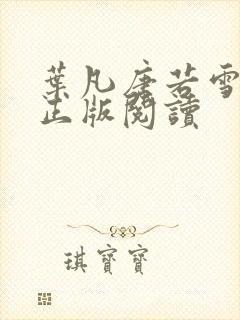 葉凡唐若雪
正版閱讀
琪寶寶